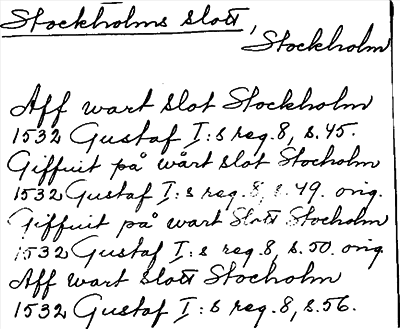 Stockholms slott,
Stockholm
Aff wart slot Stockholm
1532 Gustaf I:s reg. 8, s. 45.
Giffuit på wårt slot Stocholm
1532 Gustaf I:s reg. 8, s. 49. orig.
Giffuit på wart Slott Stocholm
1532 Gustaf I:s reg. 8, s. 50. orig
Aff wart slott Stocholm
1532 Gustaf I:s reg. 8, s. 56.